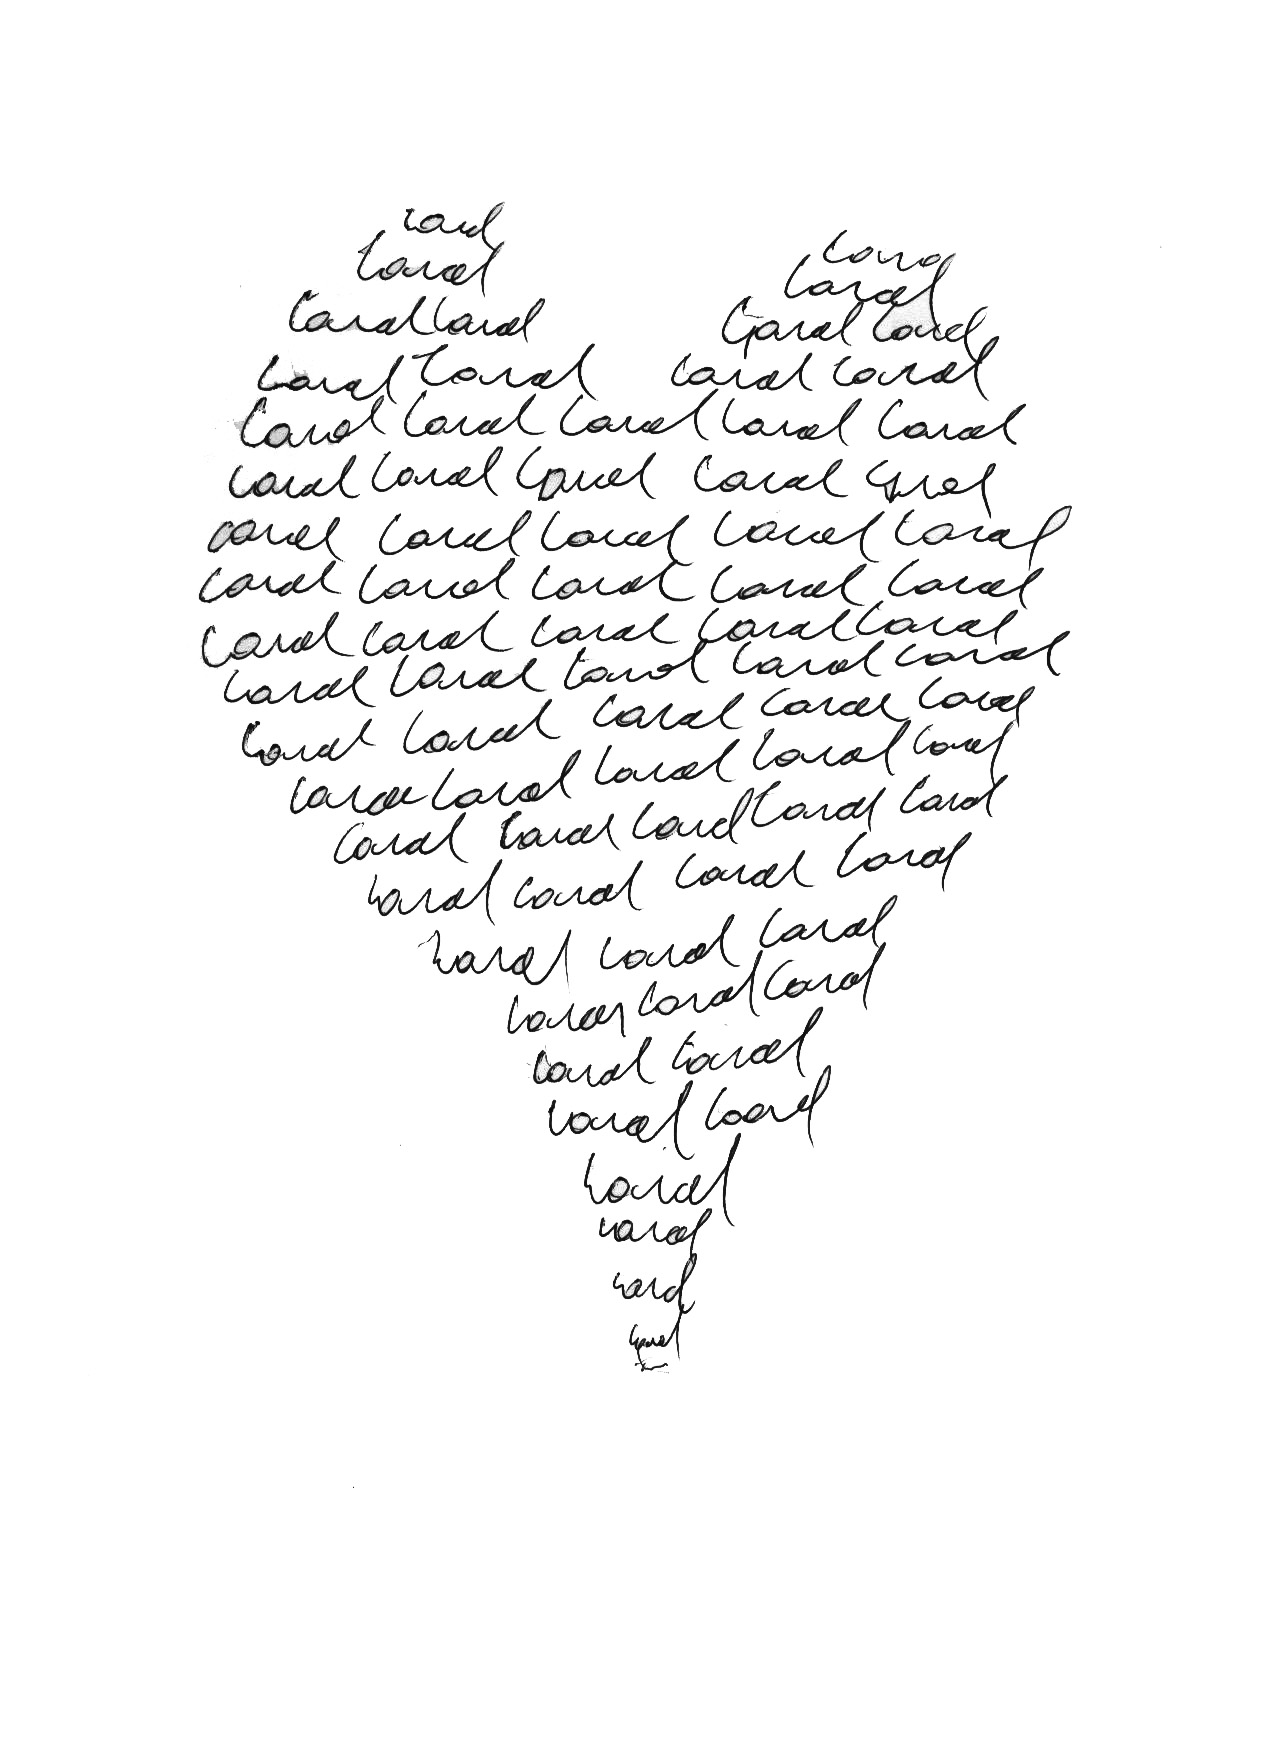 Carol Carol
Carol Carol
Carol Carol Carol Carol
Carol Carol Carol Carol
Carol Carol Carol Carol Carol
Carol Carol Carol Carol Carol
Carol Carol Carol Carol Carol
Carol Carol Carol Carol Carol
Carol Carol Carol Carol Carol
Carol Carol Carol Carol Carol
Carol Carol Carol Carol Carol
Carol Carol Carol Carol Carol
Carol Carol Carol Carol Carol
Carol Carol Carol Carol
Carol Carol Carol
Carol Carol Carol
Carol Carol
Carol Carol
Carol
Carol
Carol
Carol